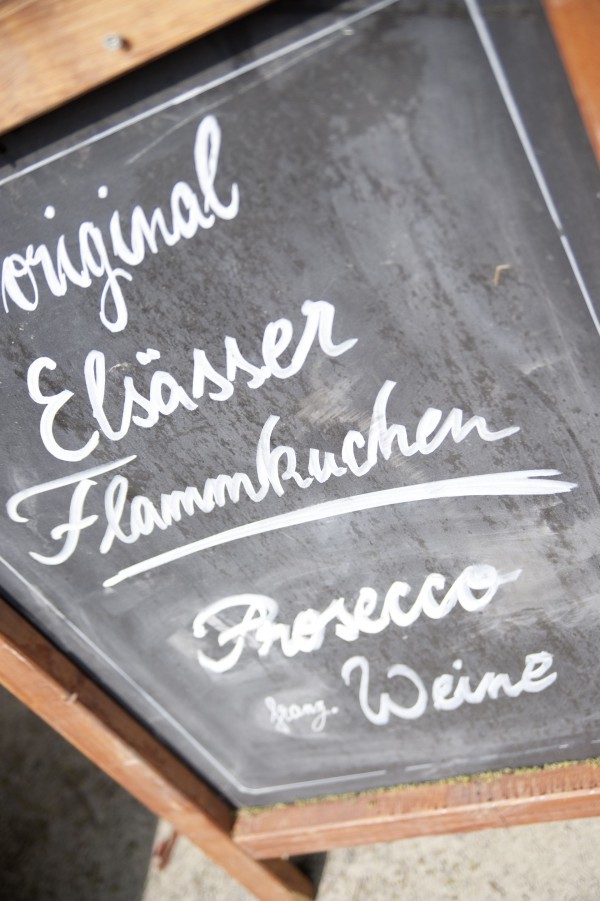 original
Elsässer
Flammkuchen
Prosecco
franz. Weine